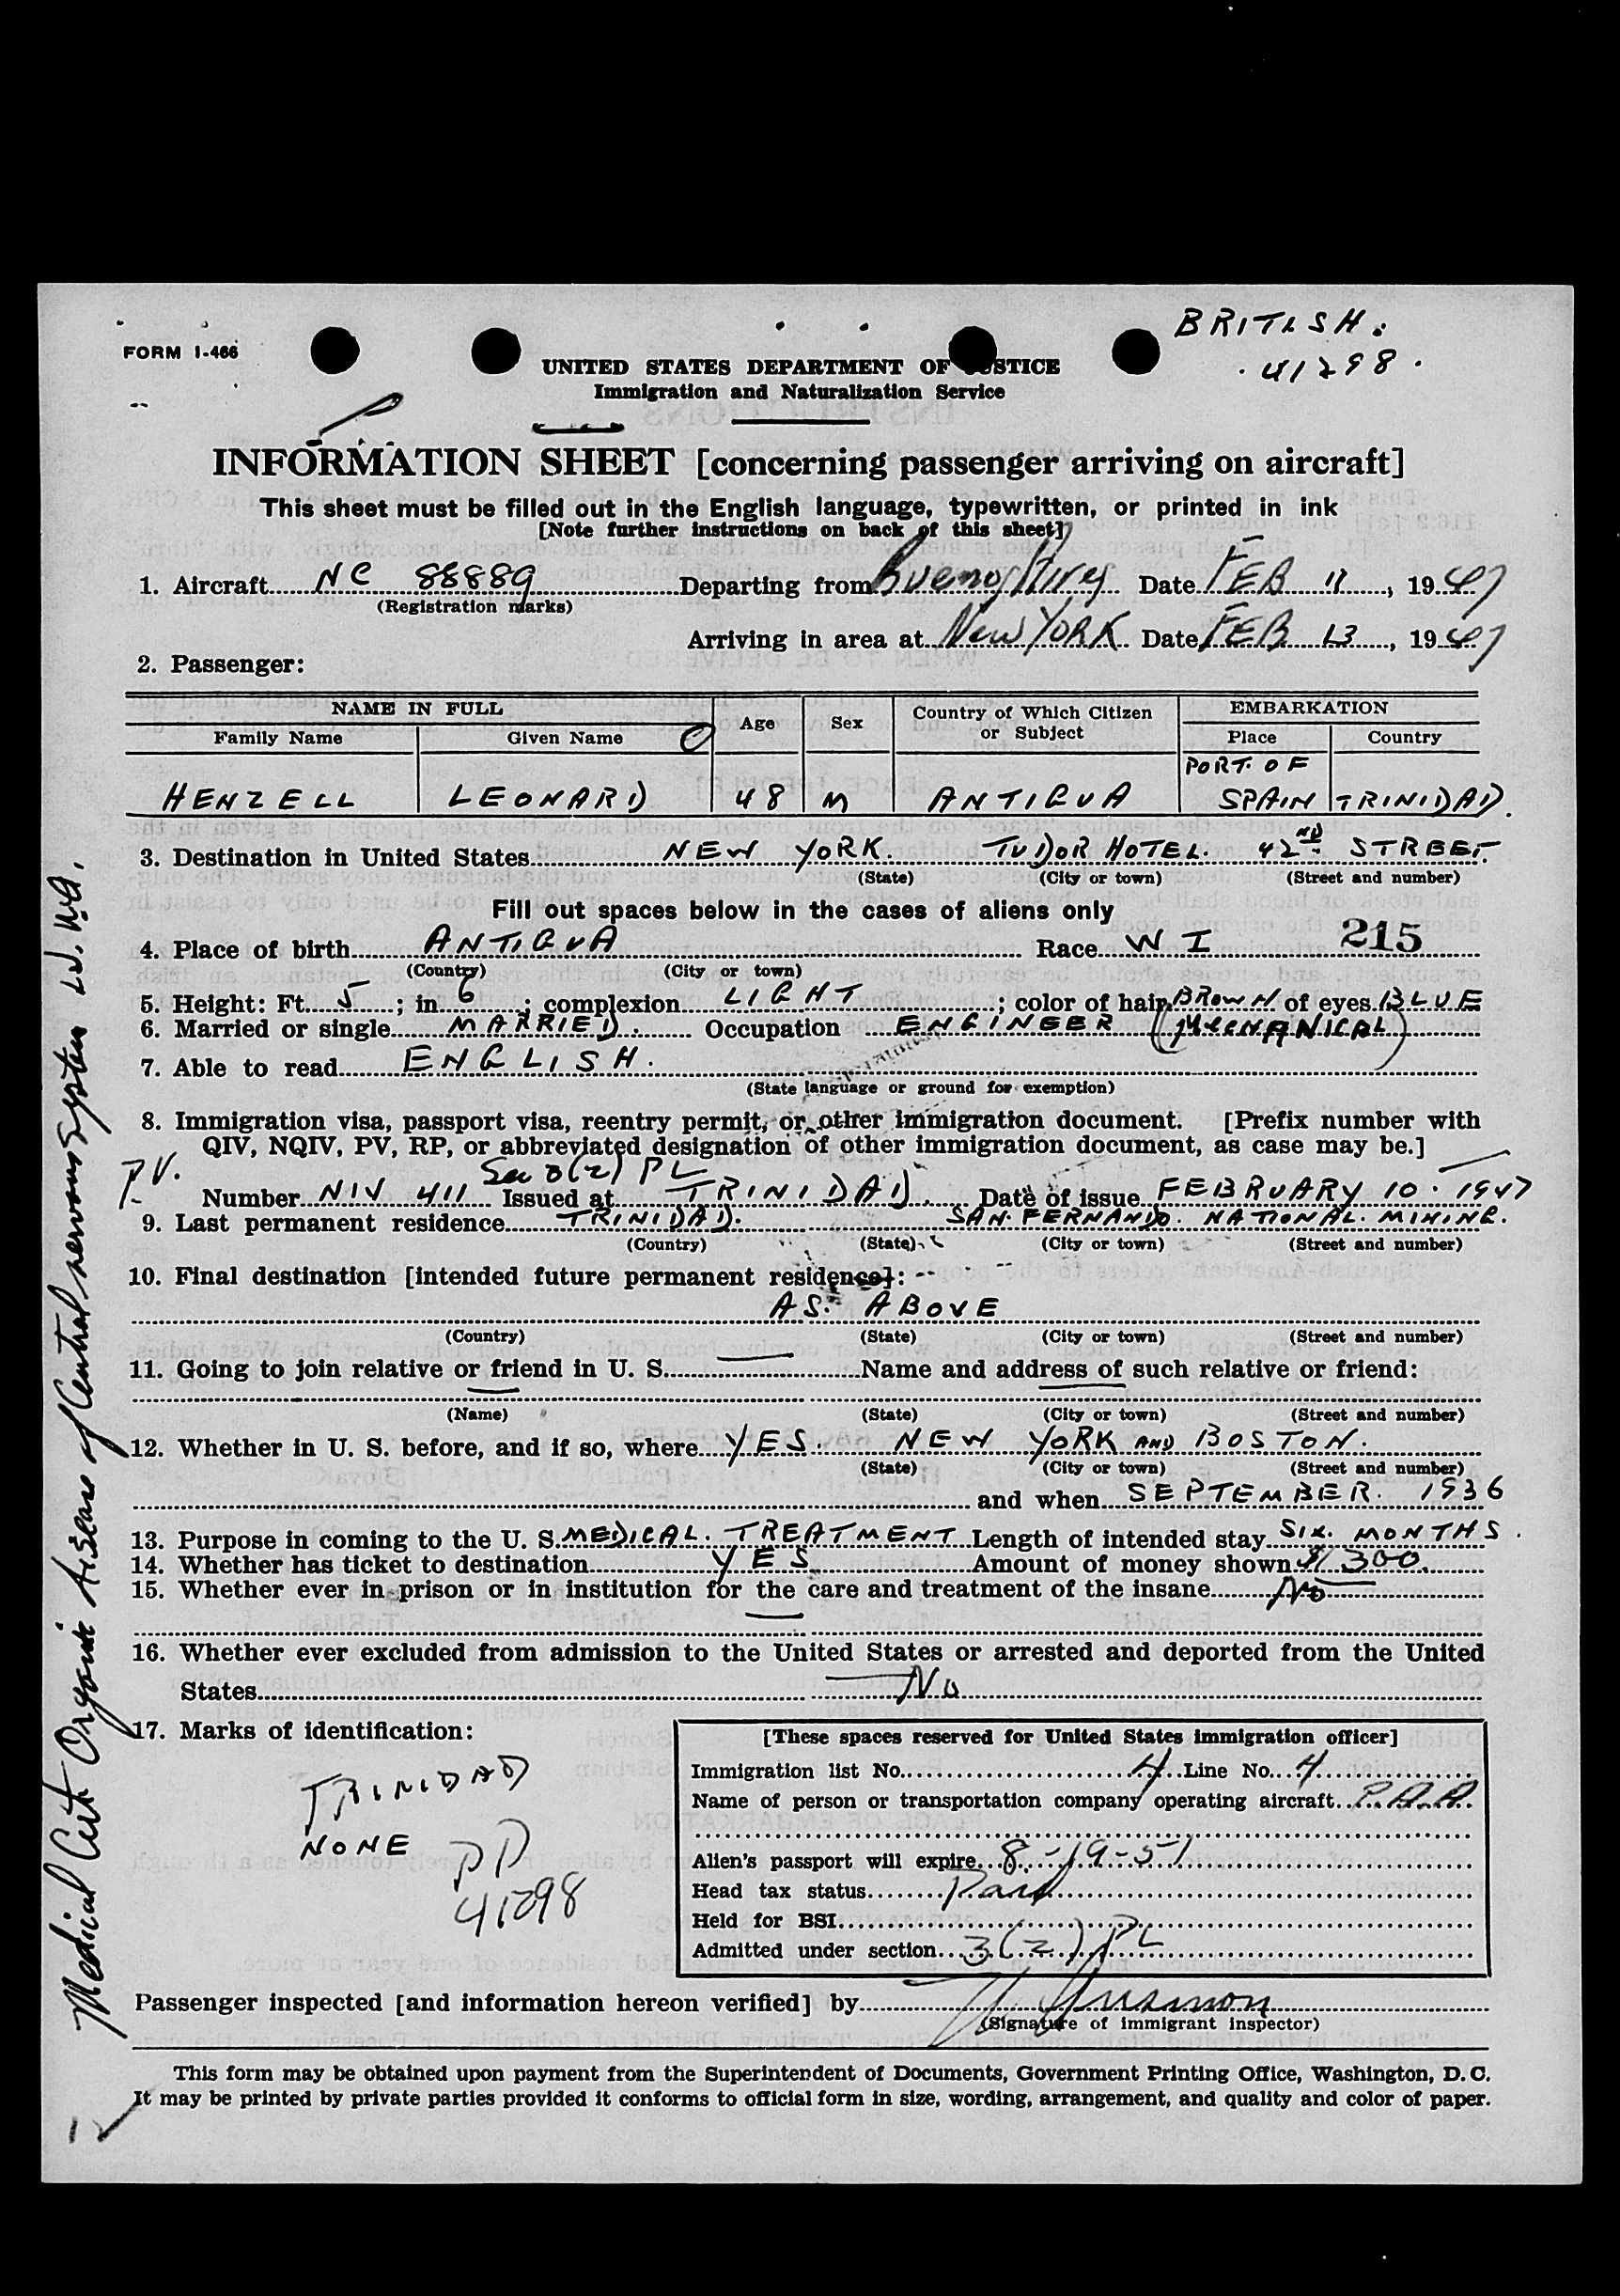 BRITISH.
FORM I-466
41298.
UNITED STATES DEPARTMENT OF JUSTICE
Immigration and Naturalization Service
INFORMATION SHEET [concerning passenger arriving on aircraft]
This sheet must be filled out in the English language, typewritten, or printed in ink
[Note further instructions on back of this sheet]
1. Aircraft NC 88889 Departing from Buenos Aires Date FEB 11, 1947
(Registration marks)
Arriving in area at New YORK Date FEB 13, 1947
2. Passenger:
NAME IN FULL Age Sex Country of Which Citizen or Subject EMBARKATION
Family Name Given Name Place Country
HENZELL LEONARD 48 M ANTIGUA PORT OF SPAIN TRINIDAD.
3. Destination in United States NEW YORK. TUDOR HOTEL. 42ND STREET.
(State) (City or town) (Street and number)
Fill out spaces below in the cases of aliens only
4. Place of birth ANTIGUA Race W I 215
(Country) (City or town)
5. Height: Ft. 5; in. 6; complexion LIGHT; color of hair BROWN of eyes BLUE
6. Married or single MARRIED. Occupation ENGINEER (MECHANICAL)
7. Able to read ENGLISH.
(State language or ground for exemption)
8. Immigration visa, passport visa, reentry permit, or other immigration document. [Prefix number with
QIV, NQIV, PV, RP, or abbreviated designation of other immigration document, as case may be.]
P.V. Sec 3(2) PL
Number NIV 411 Issued at TRINIDAD. Date of issue FEBRUARY 10. 1947
9. Last permanent residence TRINIDAD. SAN. FERNANDO. NATIONAL. MINING.
(Country) (State) (City or town) (Street and number)
10. Final destination [intended future permanent residence]:
AS. ABOVE
(Country) (State) (City or town) (Street and number)
11. Going to join relative or friend in U. S. Name and address of such relative or friend:
(Name) (State) (City or town) (Street and number)
12. Whether in U. S. before, and if so, where YES. NEW YORK AND BOSTON.
(State) (City or town) (Street and number)
and when SEPTEMBER. 1936
13. Purpose in coming to the U. S. MEDICAL. TREATMENT Length of intended stay SIX. MONTHS.
14. Whether has ticket to destination YES Amount of money shown $1300.
15. Whether ever in prison or in institution for the care and treatment of the insane No
16. Whether ever excluded from admission to the United States or arrested and deported from the United
States No
17. Marks of identification:
TRINIDAD
NONE
PP
41298
[These spaces reserved for United States immigration officer]
Immigration list No. 4 Line No. 4
Name of person or transportation company operating aircraft P.A.A.
Alien's passport will expire 8-19-51
Head tax status Paid
Held for BSI
Admitted under section 3(2) PL
Passenger inspected [and information hereon verified] by
(Signature of immigrant inspector)
This form may be obtained upon payment from the Superintendent of Documents, Government Printing Office, Washington, D. C.
It may be printed by private parties provided it conforms to official form in size, wording, arrangement, and quality and color of paper.
Medical Cert Organic disease of Central nervous system